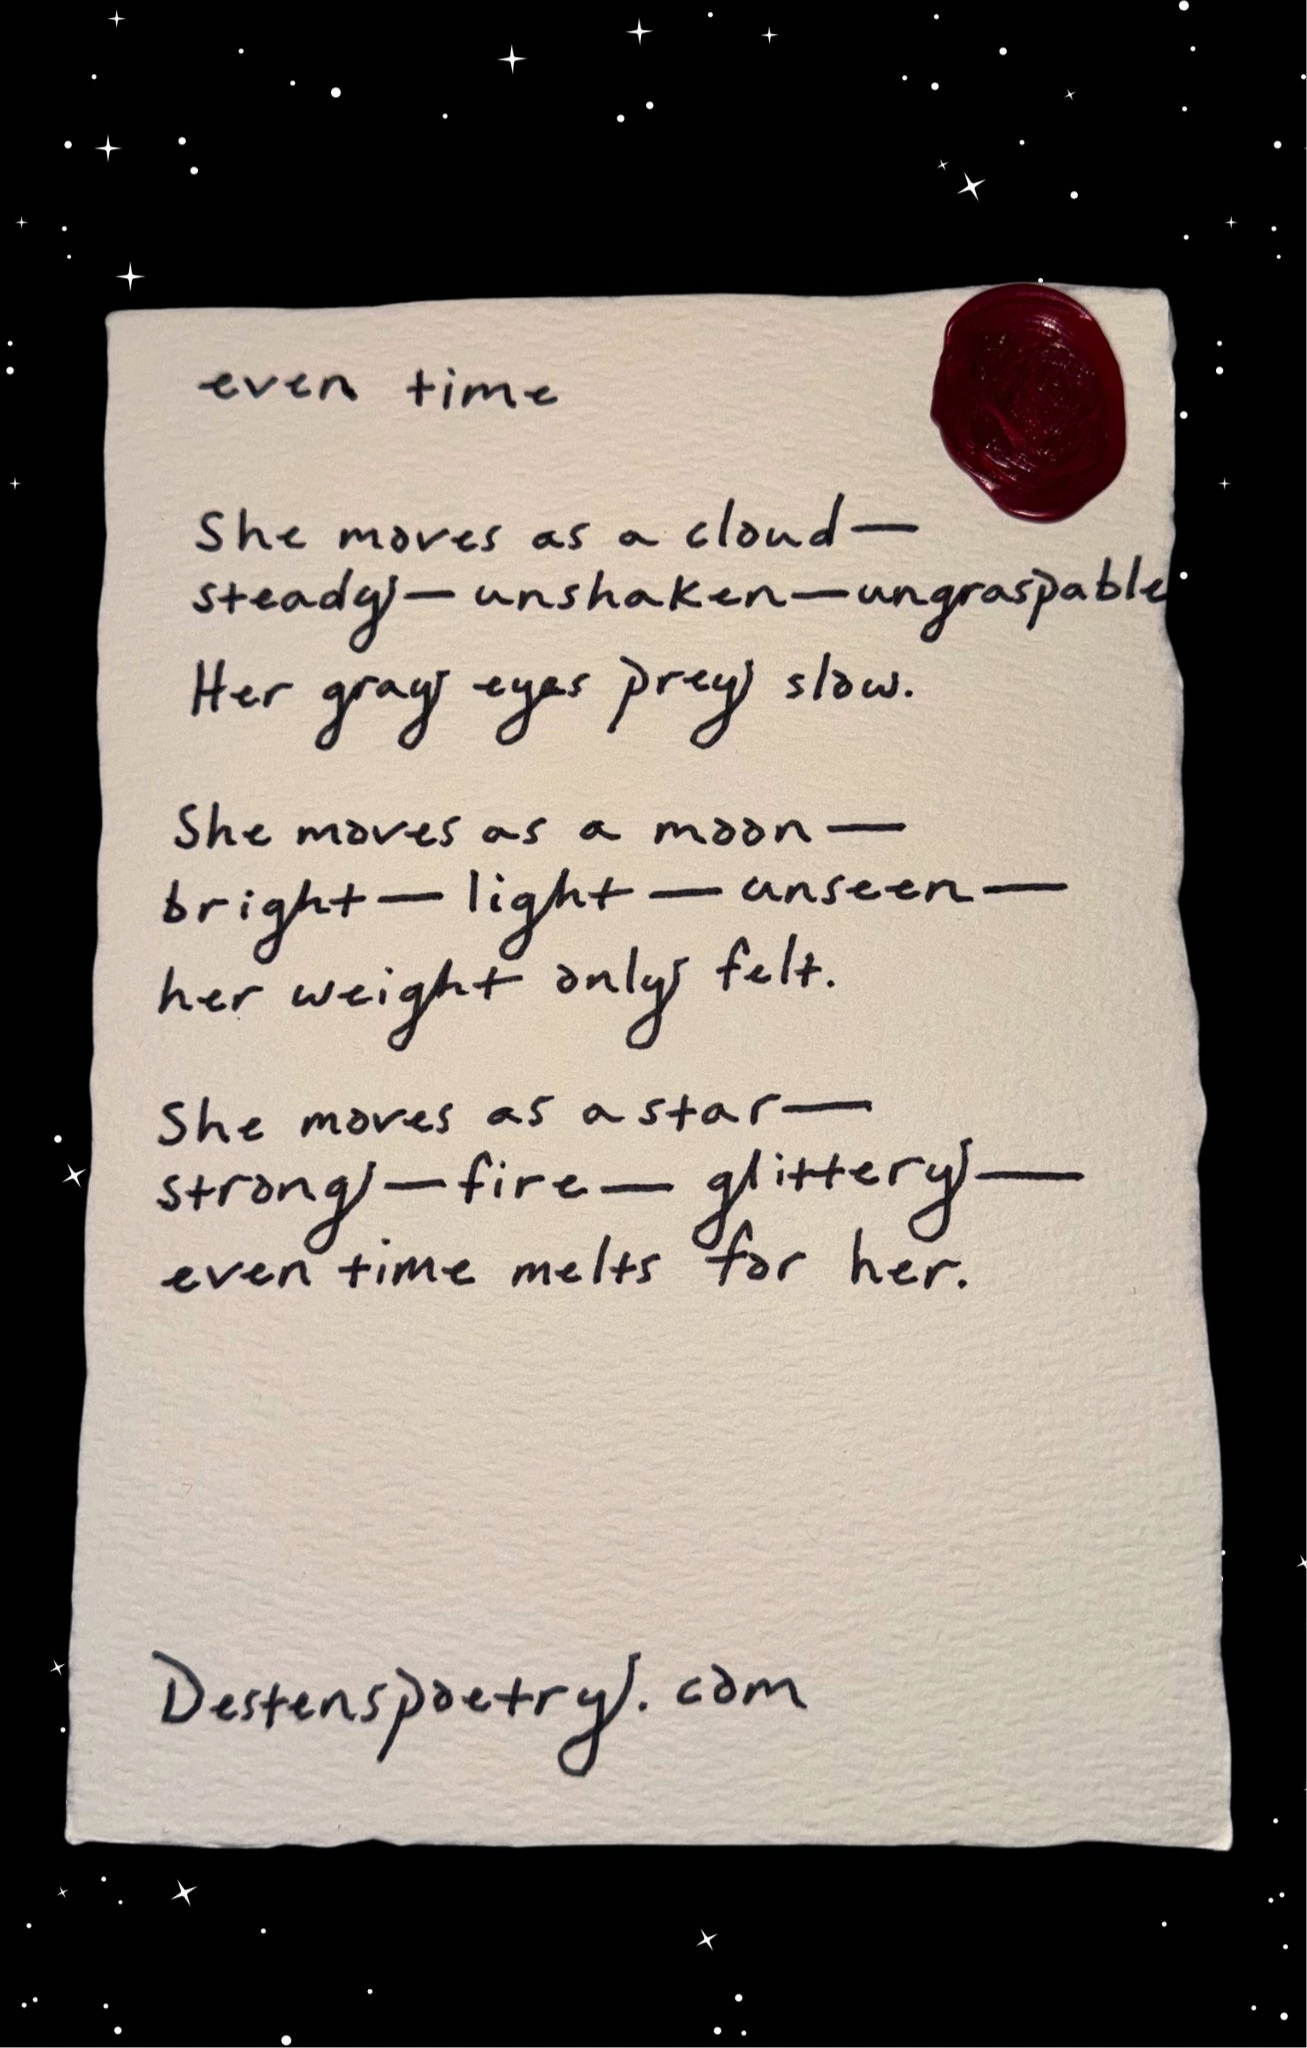 even time
She moves as a cloud—
steady—unshaken—ungraspable
Her gray eyes prey slow.
She moves as a moon—
bright—light—unseen—
her weight only felt.
She moves as a star—
strong—fire—glittery—
even time melts for her.
Destenspoetry.com